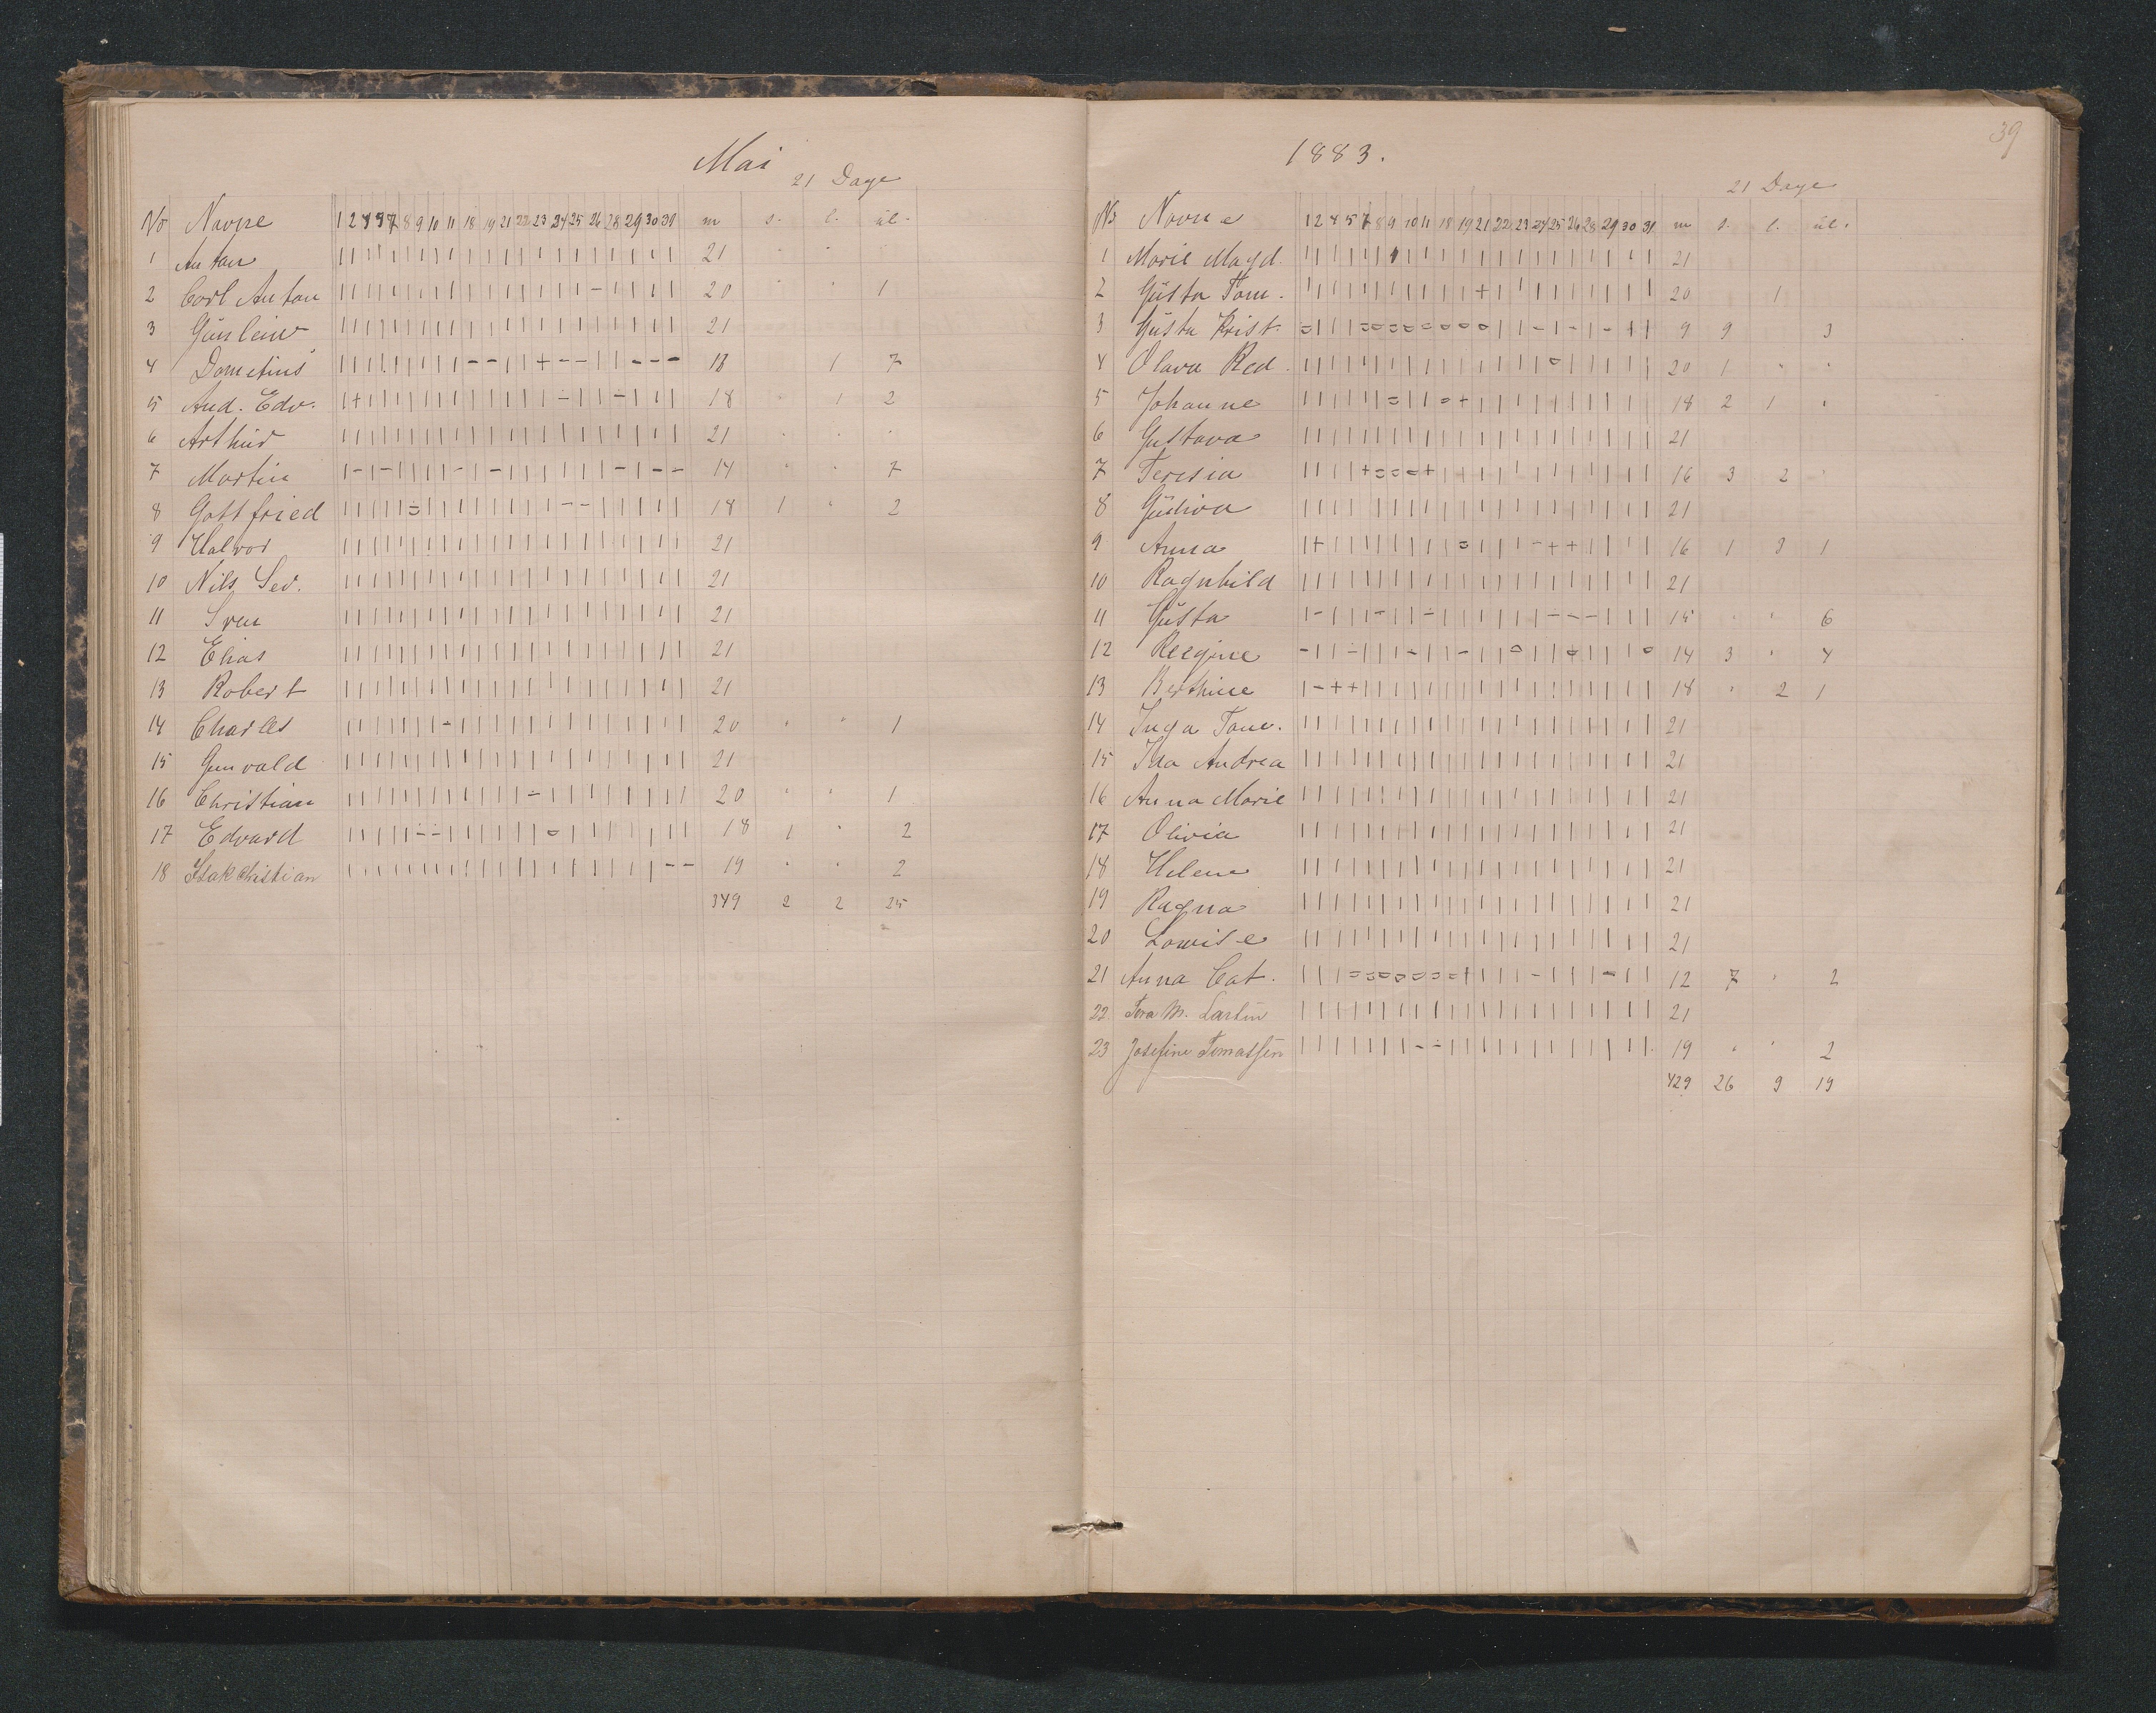 Mai
21 Dage
No Navne 1 2 4 5 7 8 9 10 11 18 19 21 22 23 24 25 26 28 29 30 31 m s. l. ul.
1 Anton 21 " "
2 Carl Anton 20 " " 1
3 Gunlein 21
4 Dometius 13 1 7
5 And. Edv. 18 " 1 2
6 Arthur 21 " " "
7 Martin 14 " " 7
8 Gottfried 18 1 " 2
9 Halvor 21
10 Nils Sev. 21
11 Sven 21
12 Elias 21
13 Robert 21
14 Charles 20 " " 1
15 Gunvald 21
16 Christian 20 " " 1
17 Edvard 18 1 " 2
18 Isak Christian 19 " " 2
349 2 2 25
39
1883.
21 Dage
No Navne 1 2 4 5 7 8 9 10 11 18 19 21 22 23 24 25 26 28 29 30 31 m s. l. ul.
1 Marie Magd. 21
2 Gusta Tom. 20 1
3 Gusta Krist. 9 9 3
4 Olava Red. 20 1 " "
5 Johanne 18 2 1 "
6 Gustava 21
7 Teresia 16 3 2 "
8 Gudiva 21
9 Anna 16 1 3 1
10 Ragnhild 21
11 Gusta 15 " " 6
12 Regine 14 3 " 4
13 Berthine 18 " 2 1
14 Inga Tom. 21
15 Ida Andrea 21
16 Anna Marie 21
17 Olivia 21
18 Helene 21
19 Ragna 21
20 Lowise 21
21 Anna Cat. 12 7 " 2
22 Tora M. 21
23 Josefine Tomassen 19 " " 2
429 26 9 19